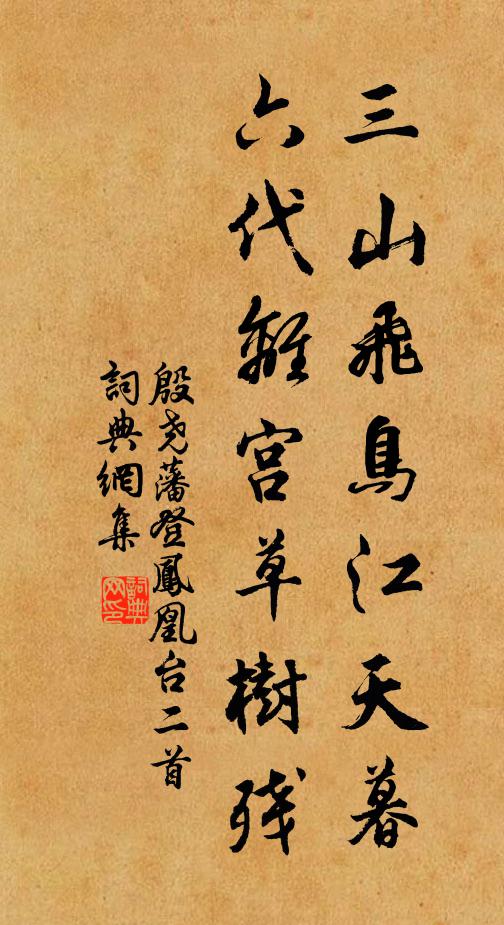 三山飛鳥江天暮
六代離宮草樹残
殷尧藩登鳳凰台二首
詞典網集
詞典
网印